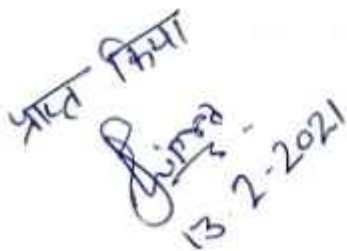 प्राप्त किया
13.2.2021